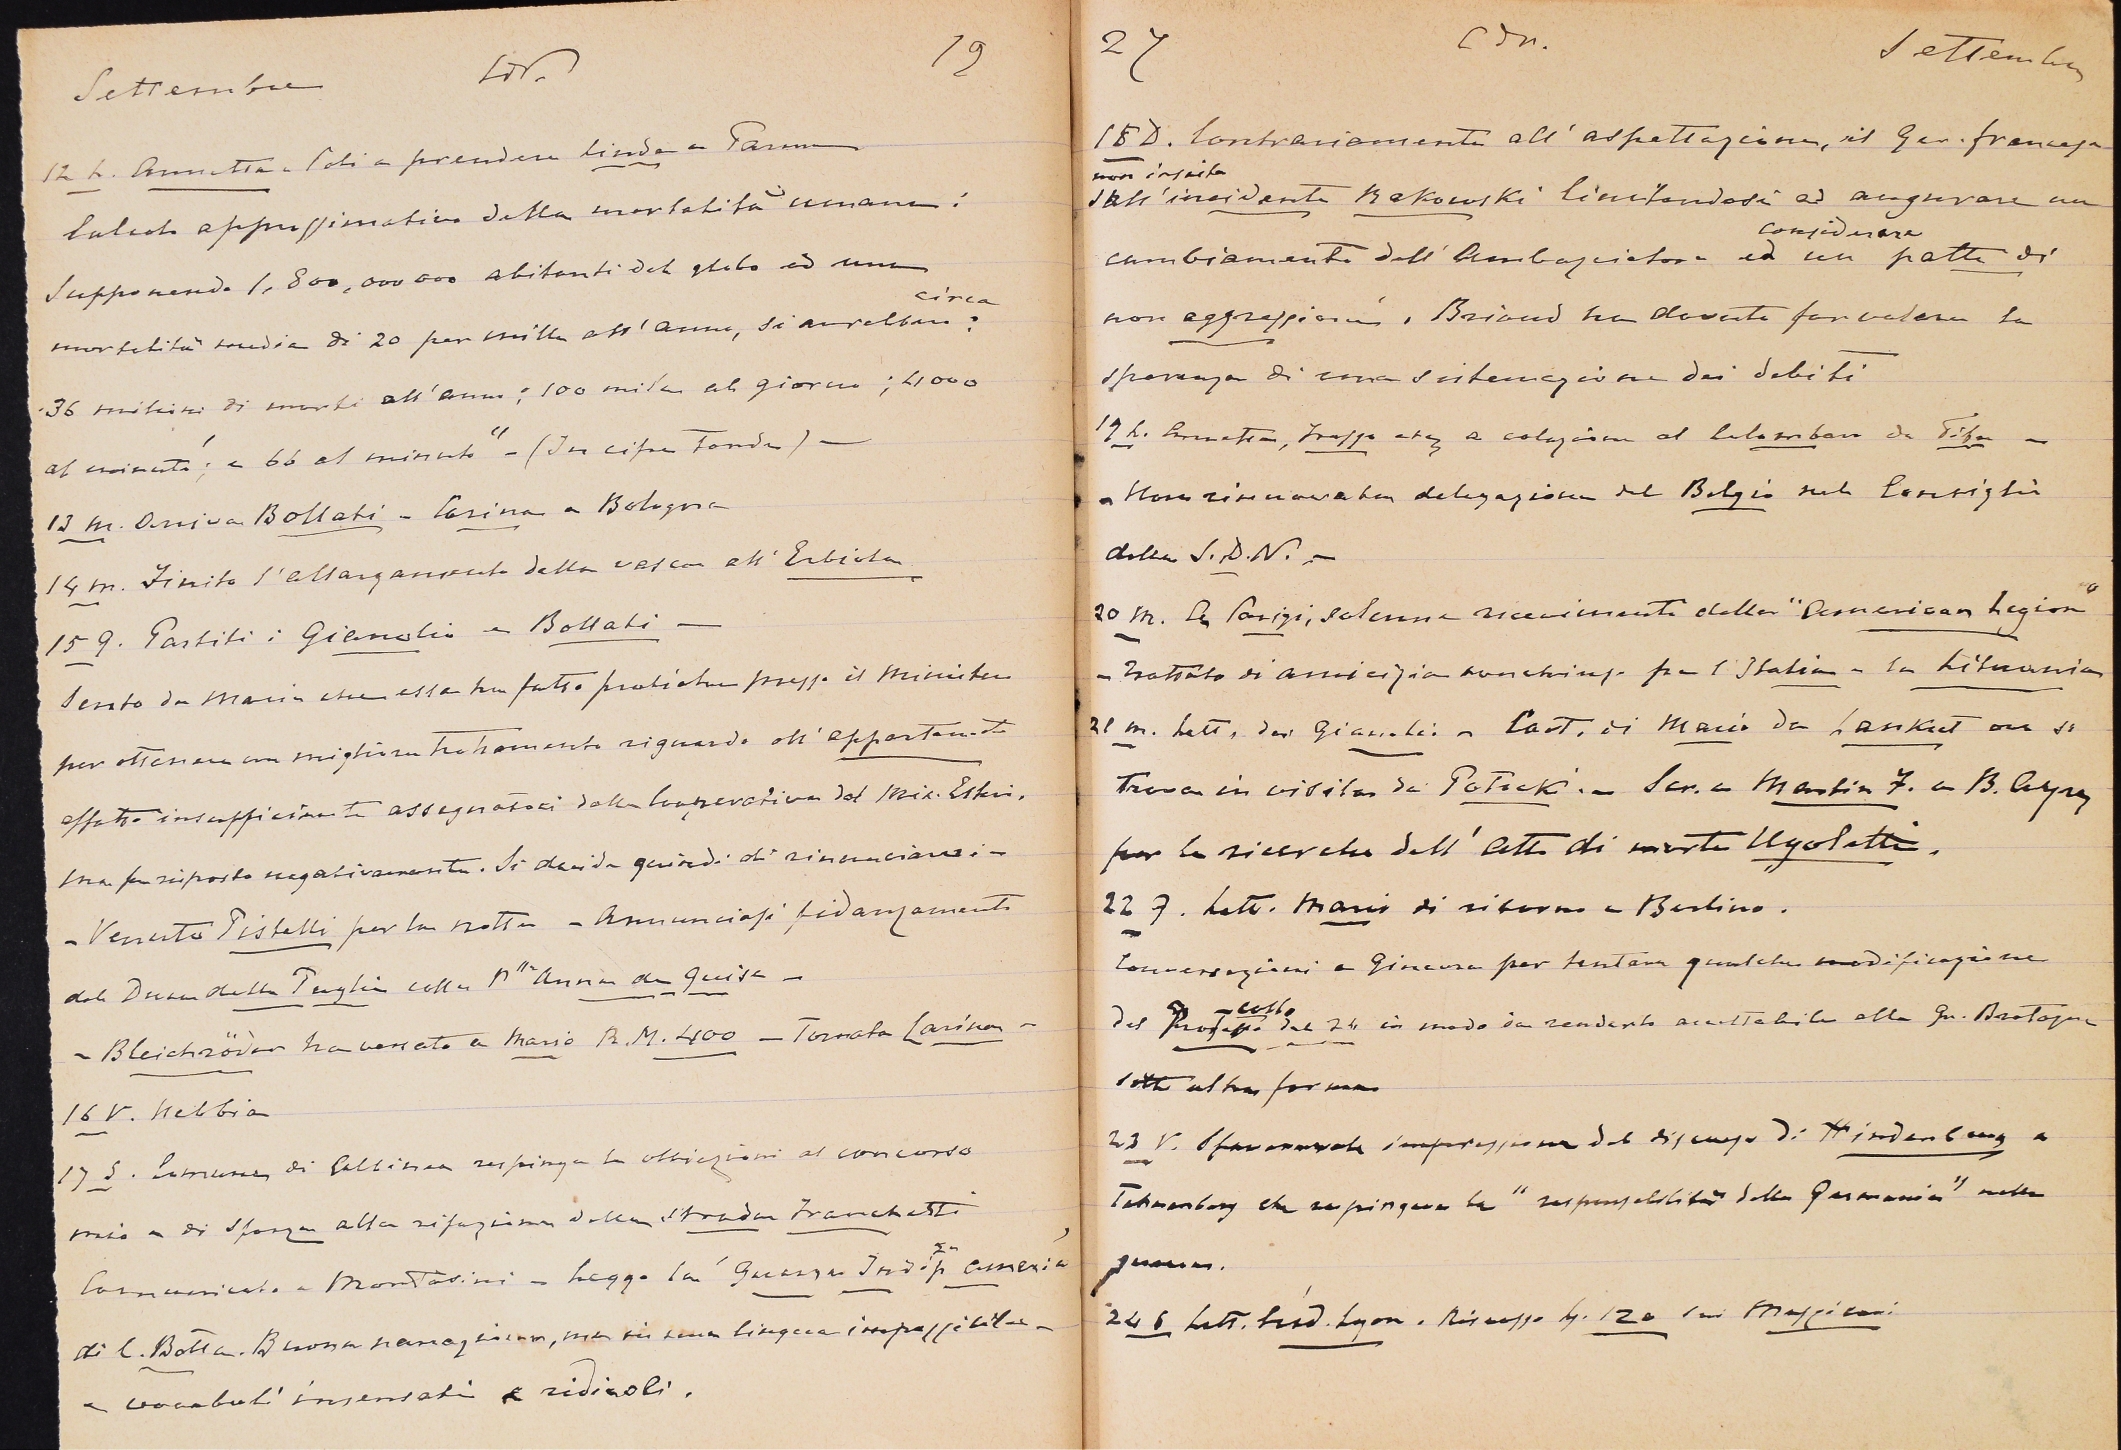 Settembre 19
12 L. Annetta e Soti a prendere Linda a Parma
Calcolo approssimativo della mortalità umana:
Supponendo 1,800,000000 abitanti del globo ed una
circa
mortalità media di 20 per mille all'anno, si avrebbero:
36 milioni di morti all'anno; 100 mila al giorno; 4000
al minuto'; e 66 al minuto" - (In cifra tonda) —
13 M. Arriva Bollati - Carina a Bologna
14 m. Finito l'allargamento della vasca all'
15 g. Partiti: Gianolio e Bollati —
Sento da Maria che essa ha fatto pratiche presso il Ministero
per ottenere un migliore trattamento riguardo all'appartamento
affatto insufficiente assegnatoci dalla Cooperativa del Min. Esteri.
ma fu risposto negativamente. Si decide quindi di rinunciarvi -
- Venuto Pistelli per la notte - Annunciasi fidanzamento
del Duca delle Puglie colla Pssa Anna de Guise -
- Bleichröder ha versato a Mario R.M. 400 - Tornata Carina -
16 V. Nebbia
17 S. Comune di Gattinea respinge le obbiezioni al concorso
mio e di Sforza alla rifazione della strada Franchetti
Comunicato a Montasini - Leggo la' Guerra Indipza Americ'
di C. Botta. Buona narrazione, ma in una lingua impossibile -
e vocaboli insensati e ridicoli.
27 Cdn. Settembre
18 D. Contrariamente all'aspettazione, il Gov. francese
non insiste
sull'incidente Rakowski limitandosi ad augurare un
considerare
cambiamento dell'Ambasciatore ed un patto di
non aggressione. Briand ha dovuto far valere la
speranza di una sistemazione dei debiti
19 L. Annetta, a colazione al Colombaro da -
- Non rinnovata delegazione del Belgio nel Consiglio
della S.D.N. -
20 M. A Parigi, solenne ricevimento della "American Legion"
- Trattato di amicizia conchiuso fra l'Italia e la Lituania
21 m. Lett. da Gianolio - Cart. di Mario da Lankut ove si
trova in visita da Potocki. - Scr. a Martin F. a B. Ayres
per le ricerche dell'atto di morte Ugoletti.
22 g. Lett. Mario di ritorno a Berlino.
Conversazioni a Ginevra per tentare qualche modificazione
-collo
del Proto del 24 in modo da renderlo accettabile alla Gr. Bretagna
sotto altra forma
23 V. Sfavorevole impressione del discorso di Hindenburg a
Tannenberg che respingeva la "responsabilità della Germania" nella
guerra.
24 S Lett. Créd. Lyon. Riscosso L. 120 sui Messicani